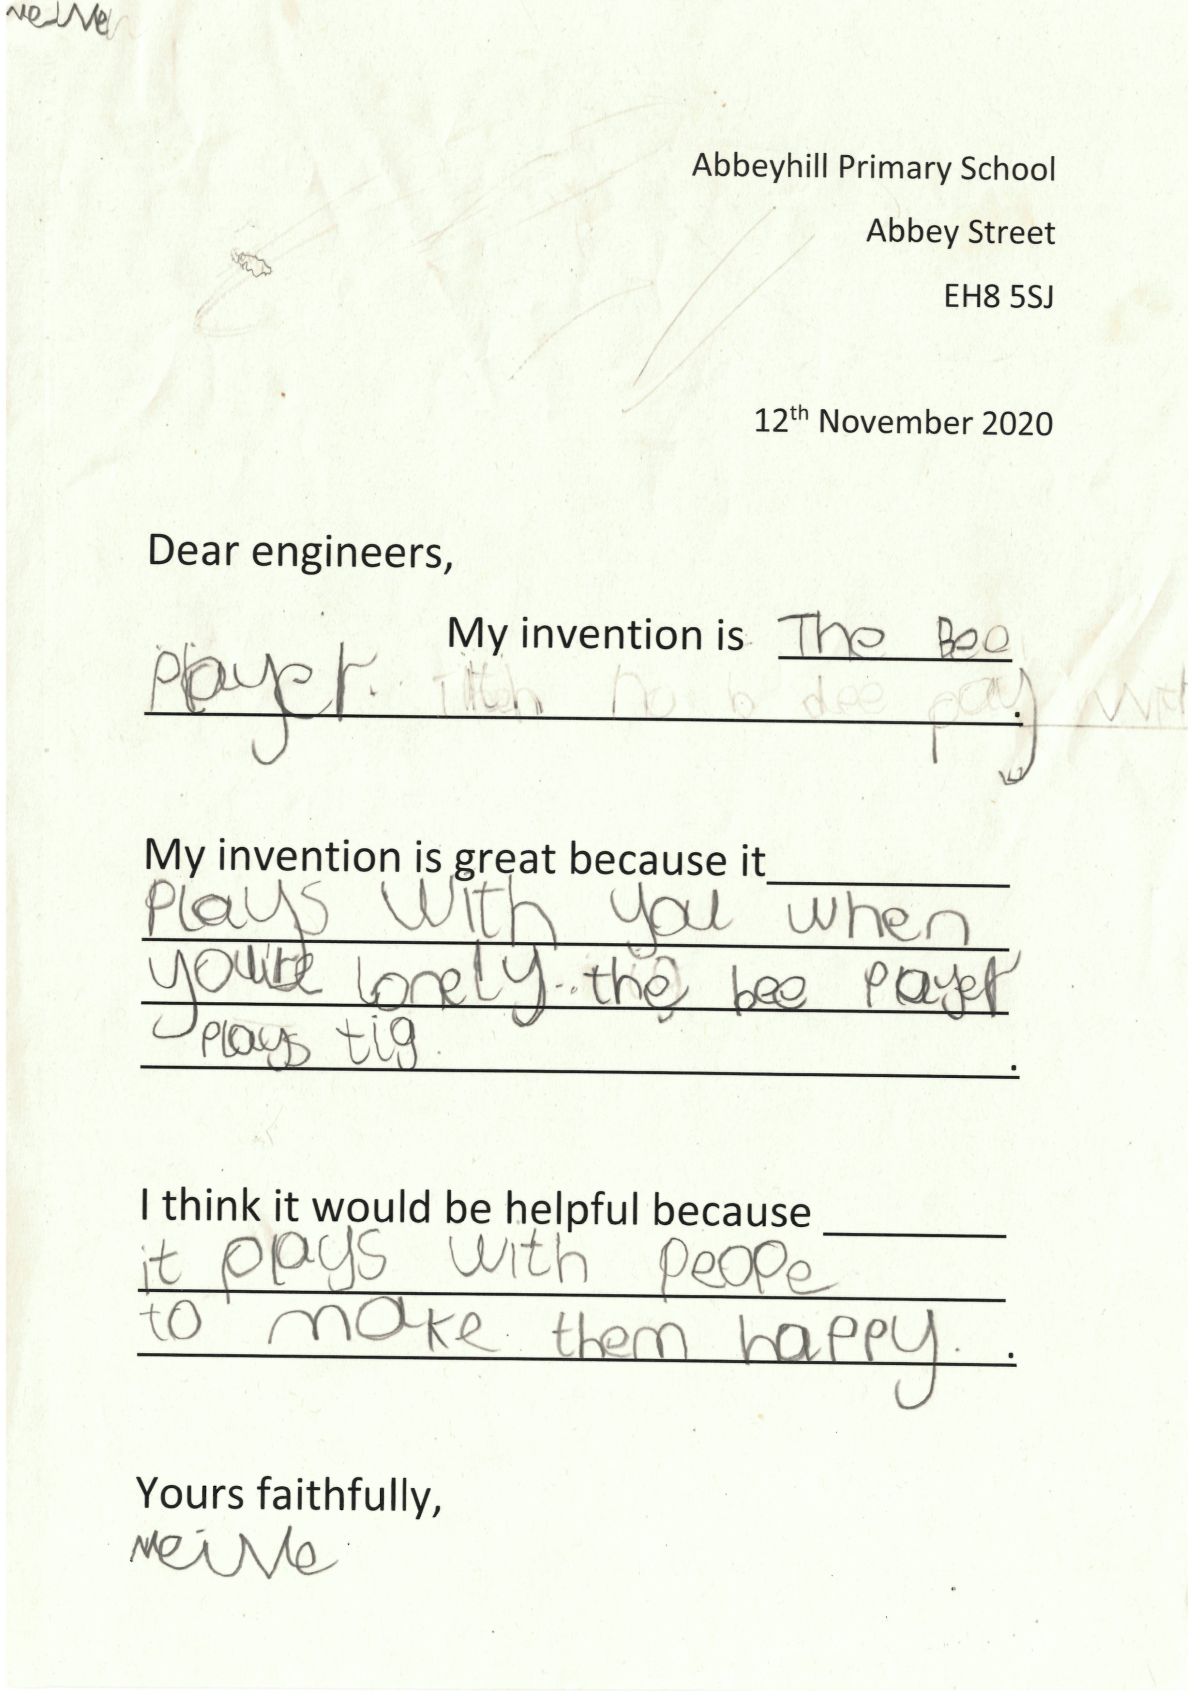 Abbeyhill Primary School
Abbey Street
EH8 5SJ
12th November 2020
Dear engineers,
My invention is The Bee
player.
My invention is great because it
Plays With you when
you're lonely. the bee Payer
Plays tig.
I think it would be helpful because
it plays with peope
to make them happy.
Yours faithfully,